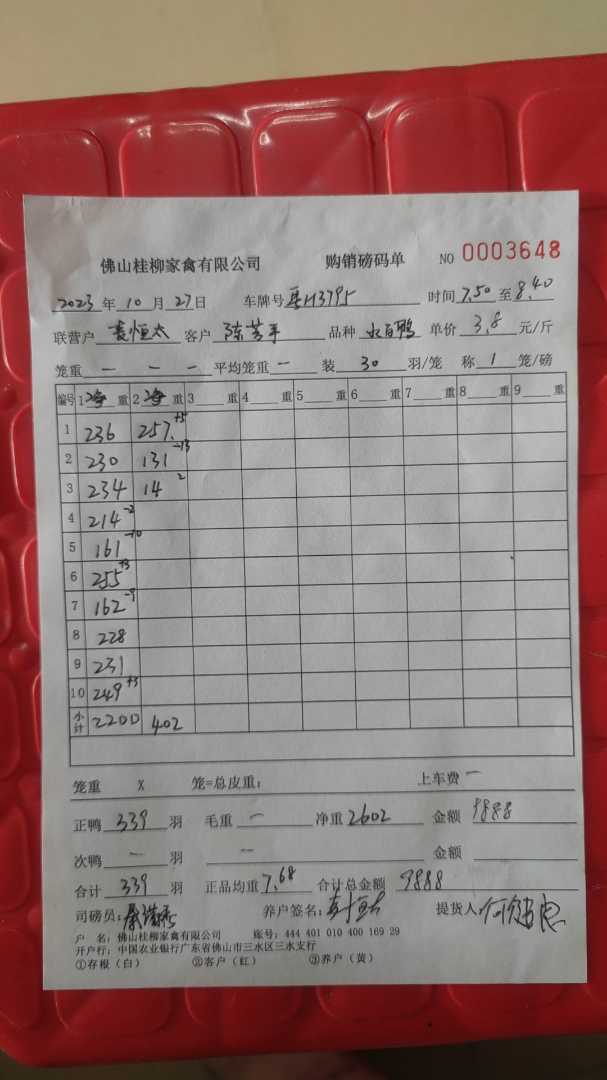 佛山桂柳家禽有限公司 购销磅码单 NO 0003648
2023 年 10 月 27 日 车牌号 H3795 时间 7.50 至 8.40
联营户 袁恒太 客户 陈芳平 品种 水白鸭 单价 3.8 元/斤
笼重 — — — 平均笼重 — 装 30 羽/笼 称 1 笼/磅
编号 1 净 重 2 净 重 3 重 4 重 5 重 6 重 7 重 8 重 9 重
1 236 257 +5
2 230 131 -13
3 234 14 2
4 214 -2
5 161 -10
6 255 +3
7 162 -9
8 228
9 231
10 249 +3
小计 2200 402
笼重 X 笼=总皮重: 上车费 —
正鸭 339 羽 毛重 — 净重 2602 金额 9888
次鸭 — 羽 — 金额
合计 339 羽 正品均重 7.68 合计总金额 9888
司磅员: 养户签名: 提货人
户 名: 佛山桂柳家禽有限公司 账号: 444 401 010 400 169 29
开户行: 中国农业银行广东省佛山市三水区三水支行
①存根(白) ②客户(红) ③养户(黄)